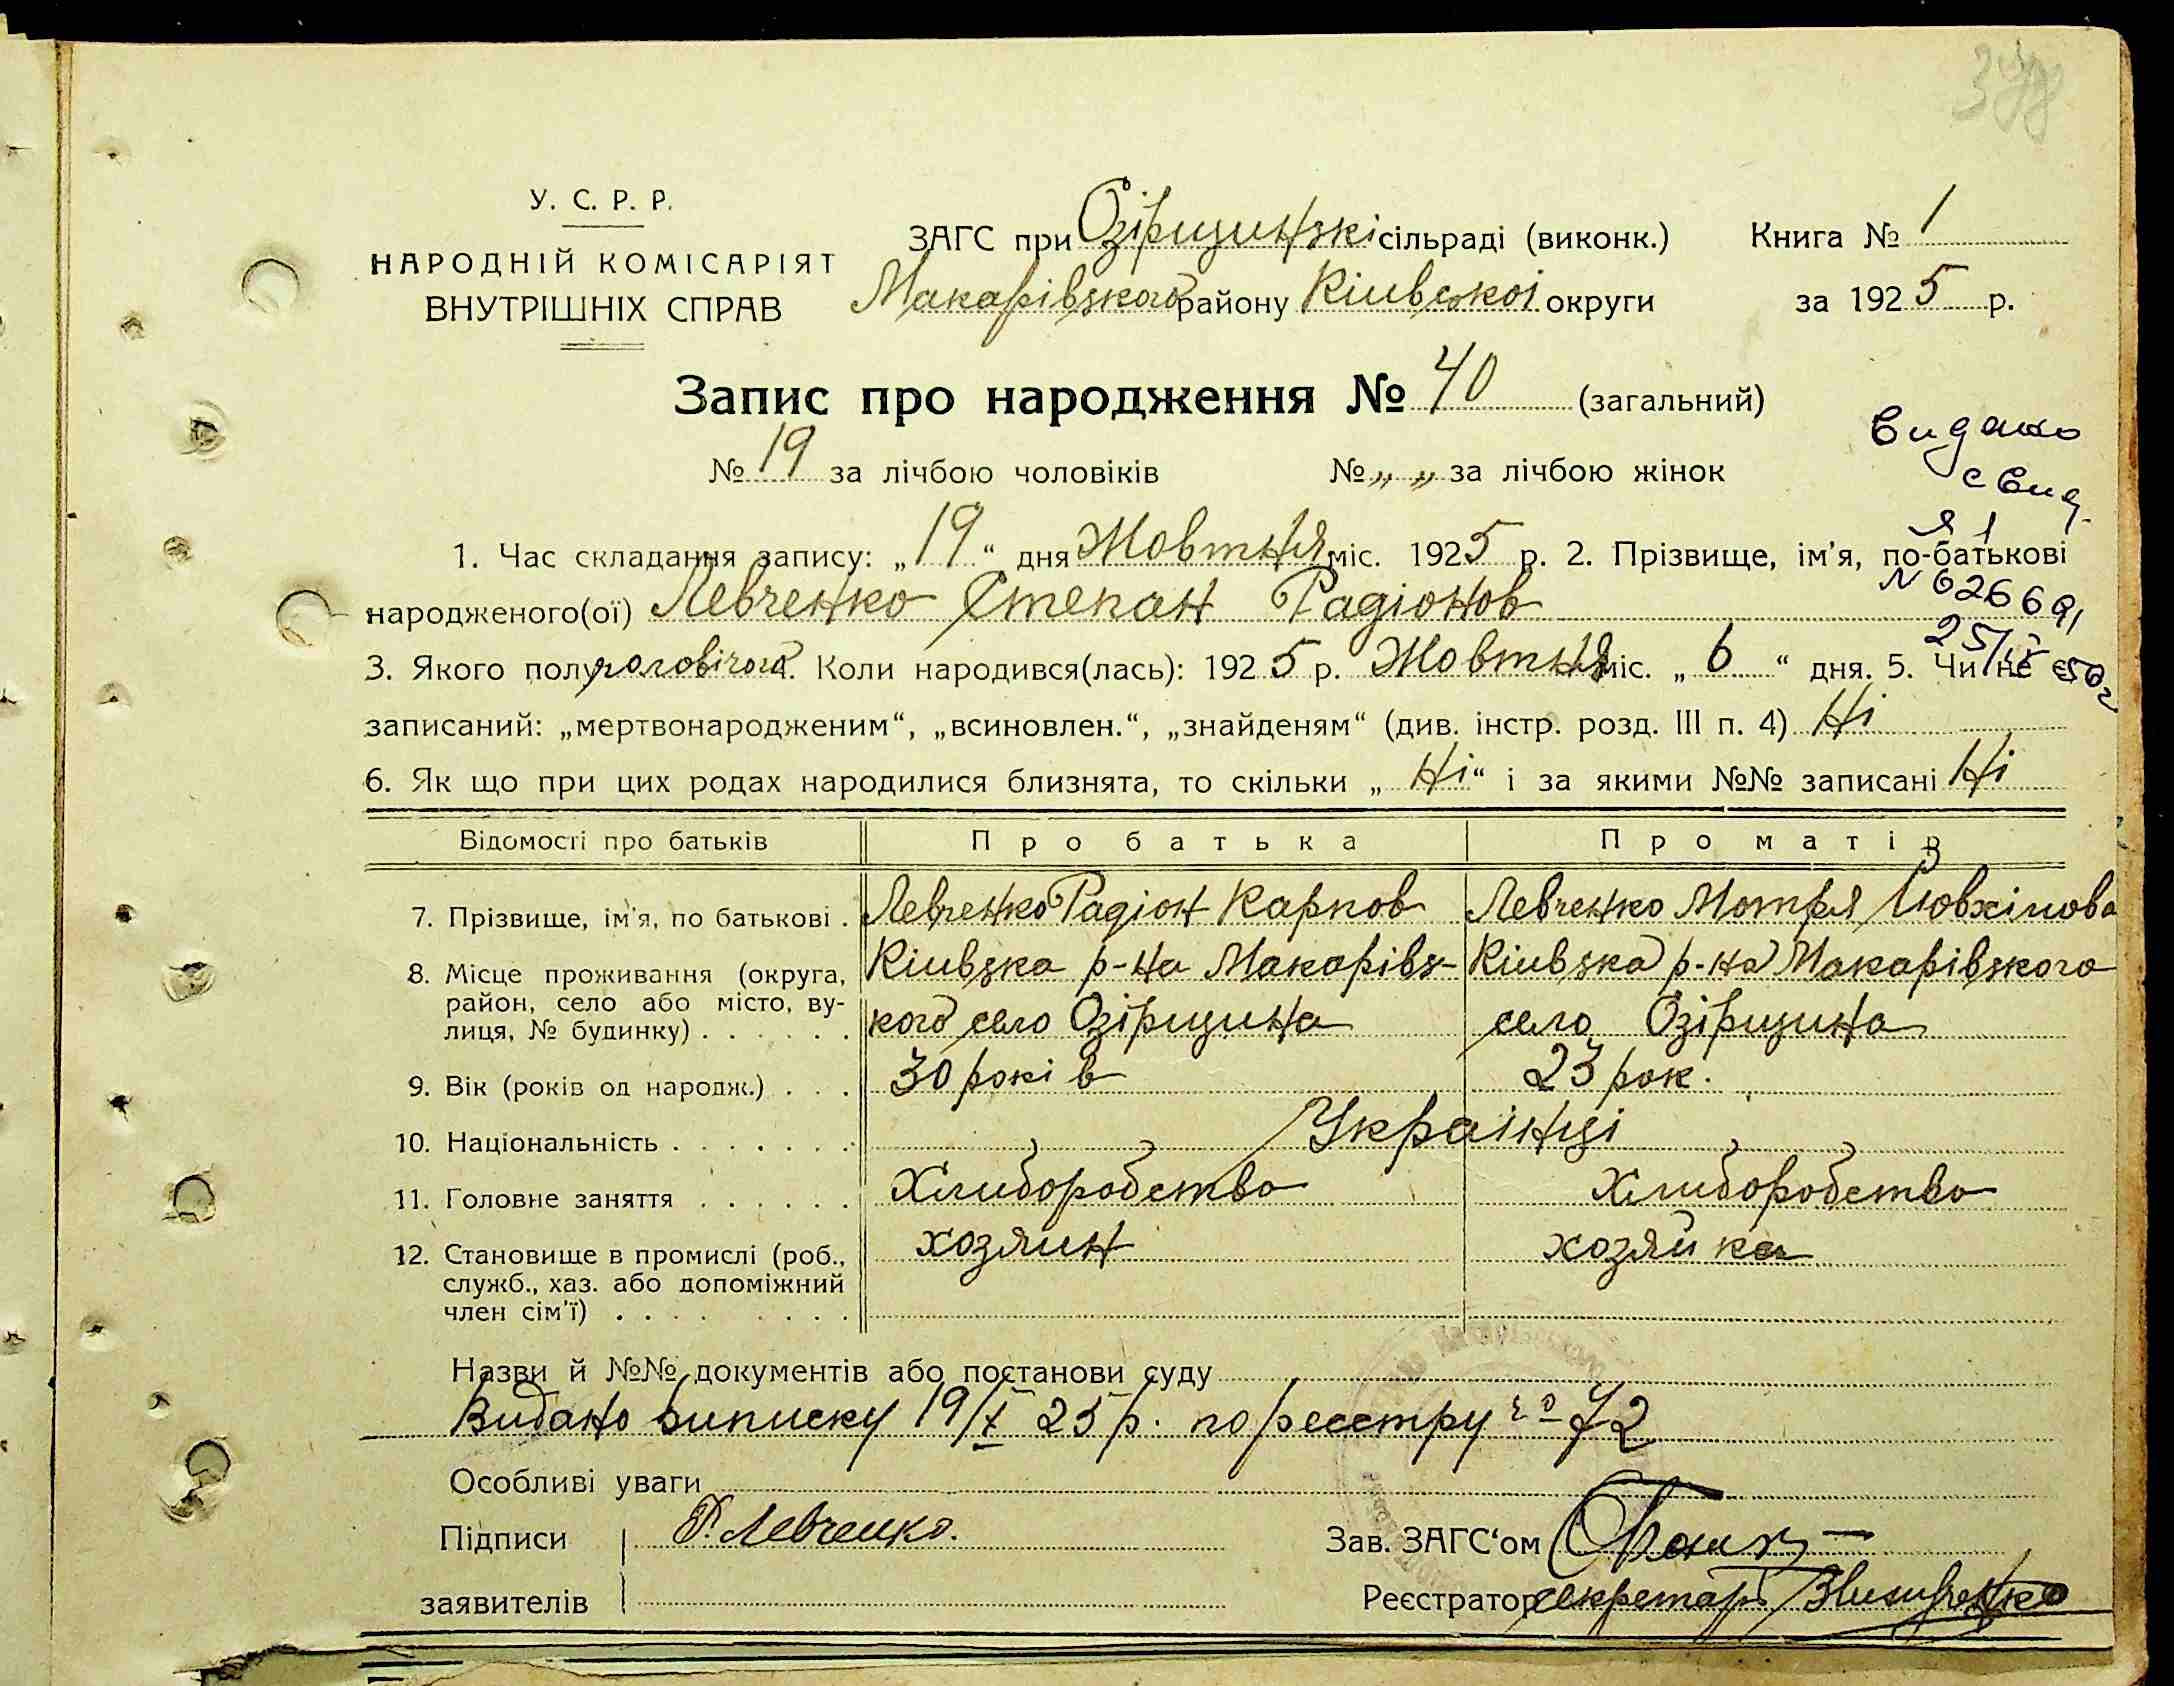 У. С. Р. Р.
НАРОДНІЙ КОМІСАРІЯТ
ВНУТРІШНІХ СПРАВ
ЗАГС при Озірщинзкі сільраді (виконк.) Книга № 1
Макарівзкого району Київської округи за 1925 р.
Запис про народження № 40 (загальний)
№ 19 за лічбою чоловіків № „ „ за лічбою жінок
видано
свид.
N 626691
1. Час складання запису: „19“ дня Жовтня міс. 1925 р. 2. Прізвище, ім'я, по-батькові
народженого(ої) Левченко Степан Радіонов
3. Якого полу чоловічого 4. Коли народився(лась): 1925 р. Жовтня міс. „6“ дня. 5. Чи не є
записаний: „мертвонародженим“, „всиновлен.“, „знайденям“ (див. інстр. розд. III п. 4) Ні
6. Як що при цих родах народилися близнята, то скільки „Ні“ і за якими №№ записані Ні
Відомості про батьків Про батька Про матір
7. Прізвище, ім'я, по батькові . Левченко Радіон Карпов Левченко Мотря Йовхімова
8. Місце проживання (округа, Київзка р-на Макарівз- Київзка р-на Макарівзкого
район, село або місто, ву-
лиця, № будинку) . . . . . . кого село Озірщина село Озірщина
9. Вік (років од народж.) . . . 30 років 23 рок.
10. Національність . . . . . . . Українці
11. Головне заняття . . . . . . Хлиборобство Хлиборобство
12. Становище в промислі (роб., хозяин хозяйка
служб., хаз. або допоміжний
член сім'ї) . . . . . . . .
Назви й №№ документів або постанови суду
Видано виписку 19/X 25 р. по реєстру № 72
Особливі уваги
Підписи Р. Левченко. Зав. ЗАГС'ом
заявителів Реєстратор секретарь